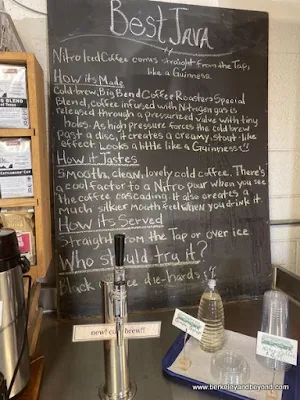 Best Java
Nitro Iced Coffee comes straight from the Tap,
like a Guinness
How its Made
Cold brew, Big Bend Coffee Roasters Special
Blend, coffee infused with Nitrogen gas is
released through a pressurized valve with tiny
holes. As high pressure forces the cold brew
past a disc, it creates a creamy, stout-like
effect. Looks a little like a Guinness!!
How it Tastes
Smooth, clean, lovely cold coffee. There's
a cool factor to a Nitro pour when you see
the coffee cascading. It also creates a
much silkier mouth feel when you drink it
How its Served
Straight from the Tap or over ice
Who should try it?
Black die-hards
new! brew!!
BIG BEND
www.berkeleyandbeyond.com